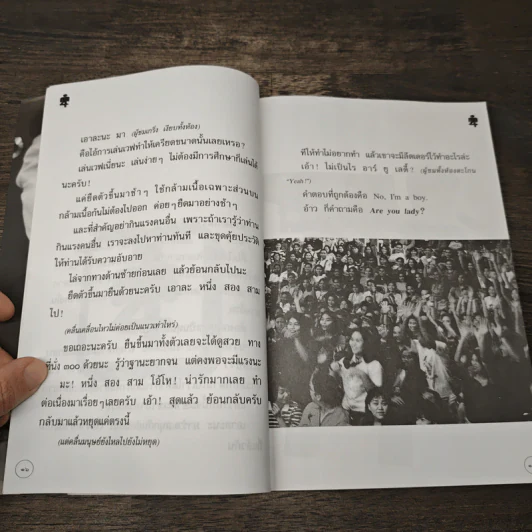 เอาละนะ มา (ผู้ชมกริ๊ง เงียบทั้งห้อง)
คือไอ้การเล่นเวฟทำให้เครียดขนาดนั้นเลยเหรอ?
เล่นเวฟเนี่ยนะ เล่นง่ายๆ ไม่ต้องมีการศึกษาก็เล่นได้
นะครับ!
แค่ยืดตัวขึ้นมาช้าๆ ใช้กล้ามเนื้อเฉพาะส่วนบน
กล้ามเนื้อก้นไม่ต้องไปออก ค่อยๆยืดมาอย่างช้าๆ
และที่สำคัญอย่ากินแรงคนอื่น เพราะถ้าเรารู้ว่าท่าน
กินแรงคนอื่น เราจะลงไปหาท่านทันที และขุดคุ้ยประวัติ
ให้ท่านได้รับความอับอาย
ไล่จากทางด้านซ้ายก่อนเลย แล้วย้อนกลับไปนะ
ยืดตัวขึ้นมายืนด้วยนะครับ เอาละ หนึ่ง สอง สาม
ไป!
(คลื่นเคลื่อนไหวไม่ค่อยเป็นแนวเท่าไหร่)
ขอเถอะนะครับ ยืนขึ้นมาทั้งตัวเลยจะได้ดูสวย ทาง
ที่นั่ง ๓๐๐ ด้วยนะ รู้ว่าฐานะยากจน แต่คงพอจะมีแรงนะ
มะ! หนึ่ง สอง สาม โอ้โห! น่ารักมากเลย ทำ
ต่อเนื่องมาเรื่อยๆเลยครับ เอ้า! สุดแล้ว ย้อนกลับครับ
กลับมาแล้วหยุดแค่ตรงนี้
(แต่คลื่นมนุษย์ยังไหลไปยังไม่หยุด)
ที่ให้ทำไม่อยากทำ แล้วเขาจะมีลีดเดอร์ไว้ทำอะไรล่ะ
เอ้า! ไม่เป็นไร อาร์ ยู เลดี้? (ผู้ชมทั้งห้องตะโกน
"Yeah")
คำตอบที่ถูกต้องคือ No, I'm a boy.
อ้าว ก็คำถามคือ Are you lady?